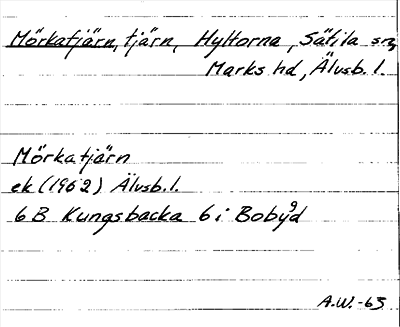 Mörkatjärn, tjärn, Hyltorna, Sätila sn,
Marks hd, Älvsb. l.
Mörkatjärn
ek (1962) Älvsb. l.
6 B Kungsbacka 6 i Bobygd
A.W. -63